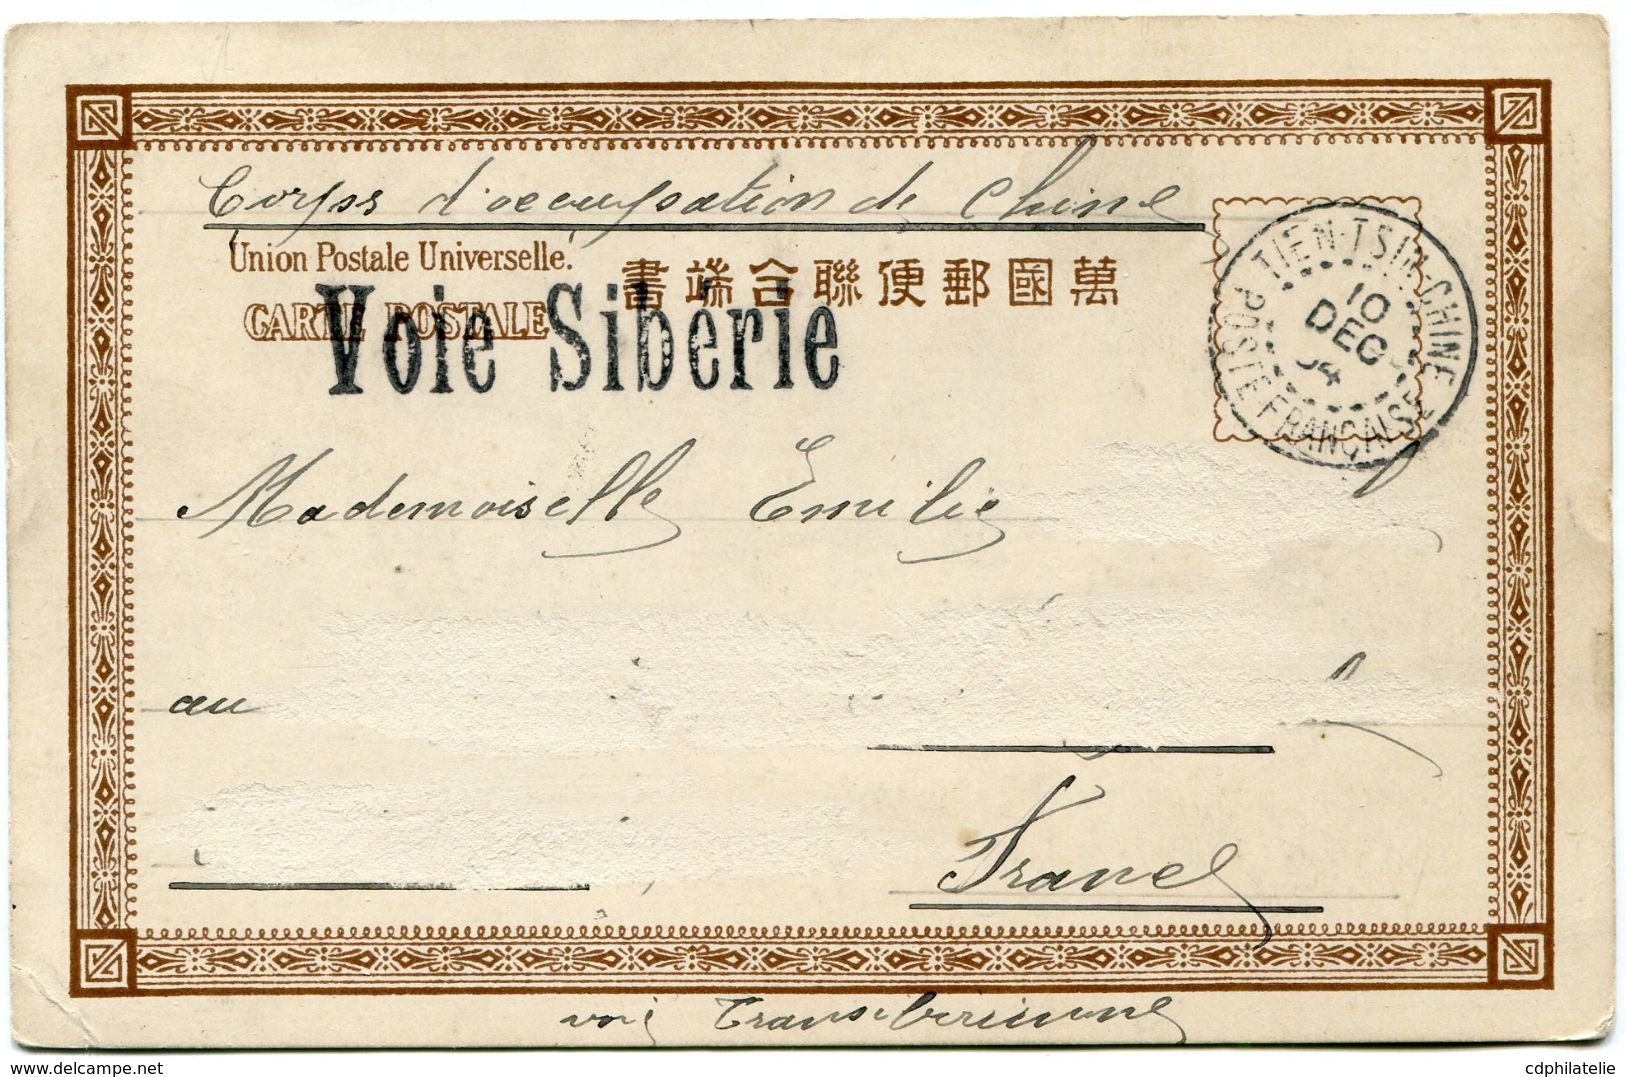 Corps d'occupation de Chine
Union Postale Universelle.
CARTE POSTALE
萬國郵便聯合端書
Voie Siberie
TIEN-TSIN-CHINE
10
DEC
04
POSTE FRANÇAISE
Mademoiselle Emilie
au
France
voie Transsibérienne
© delcampe.net
cdphilatelie